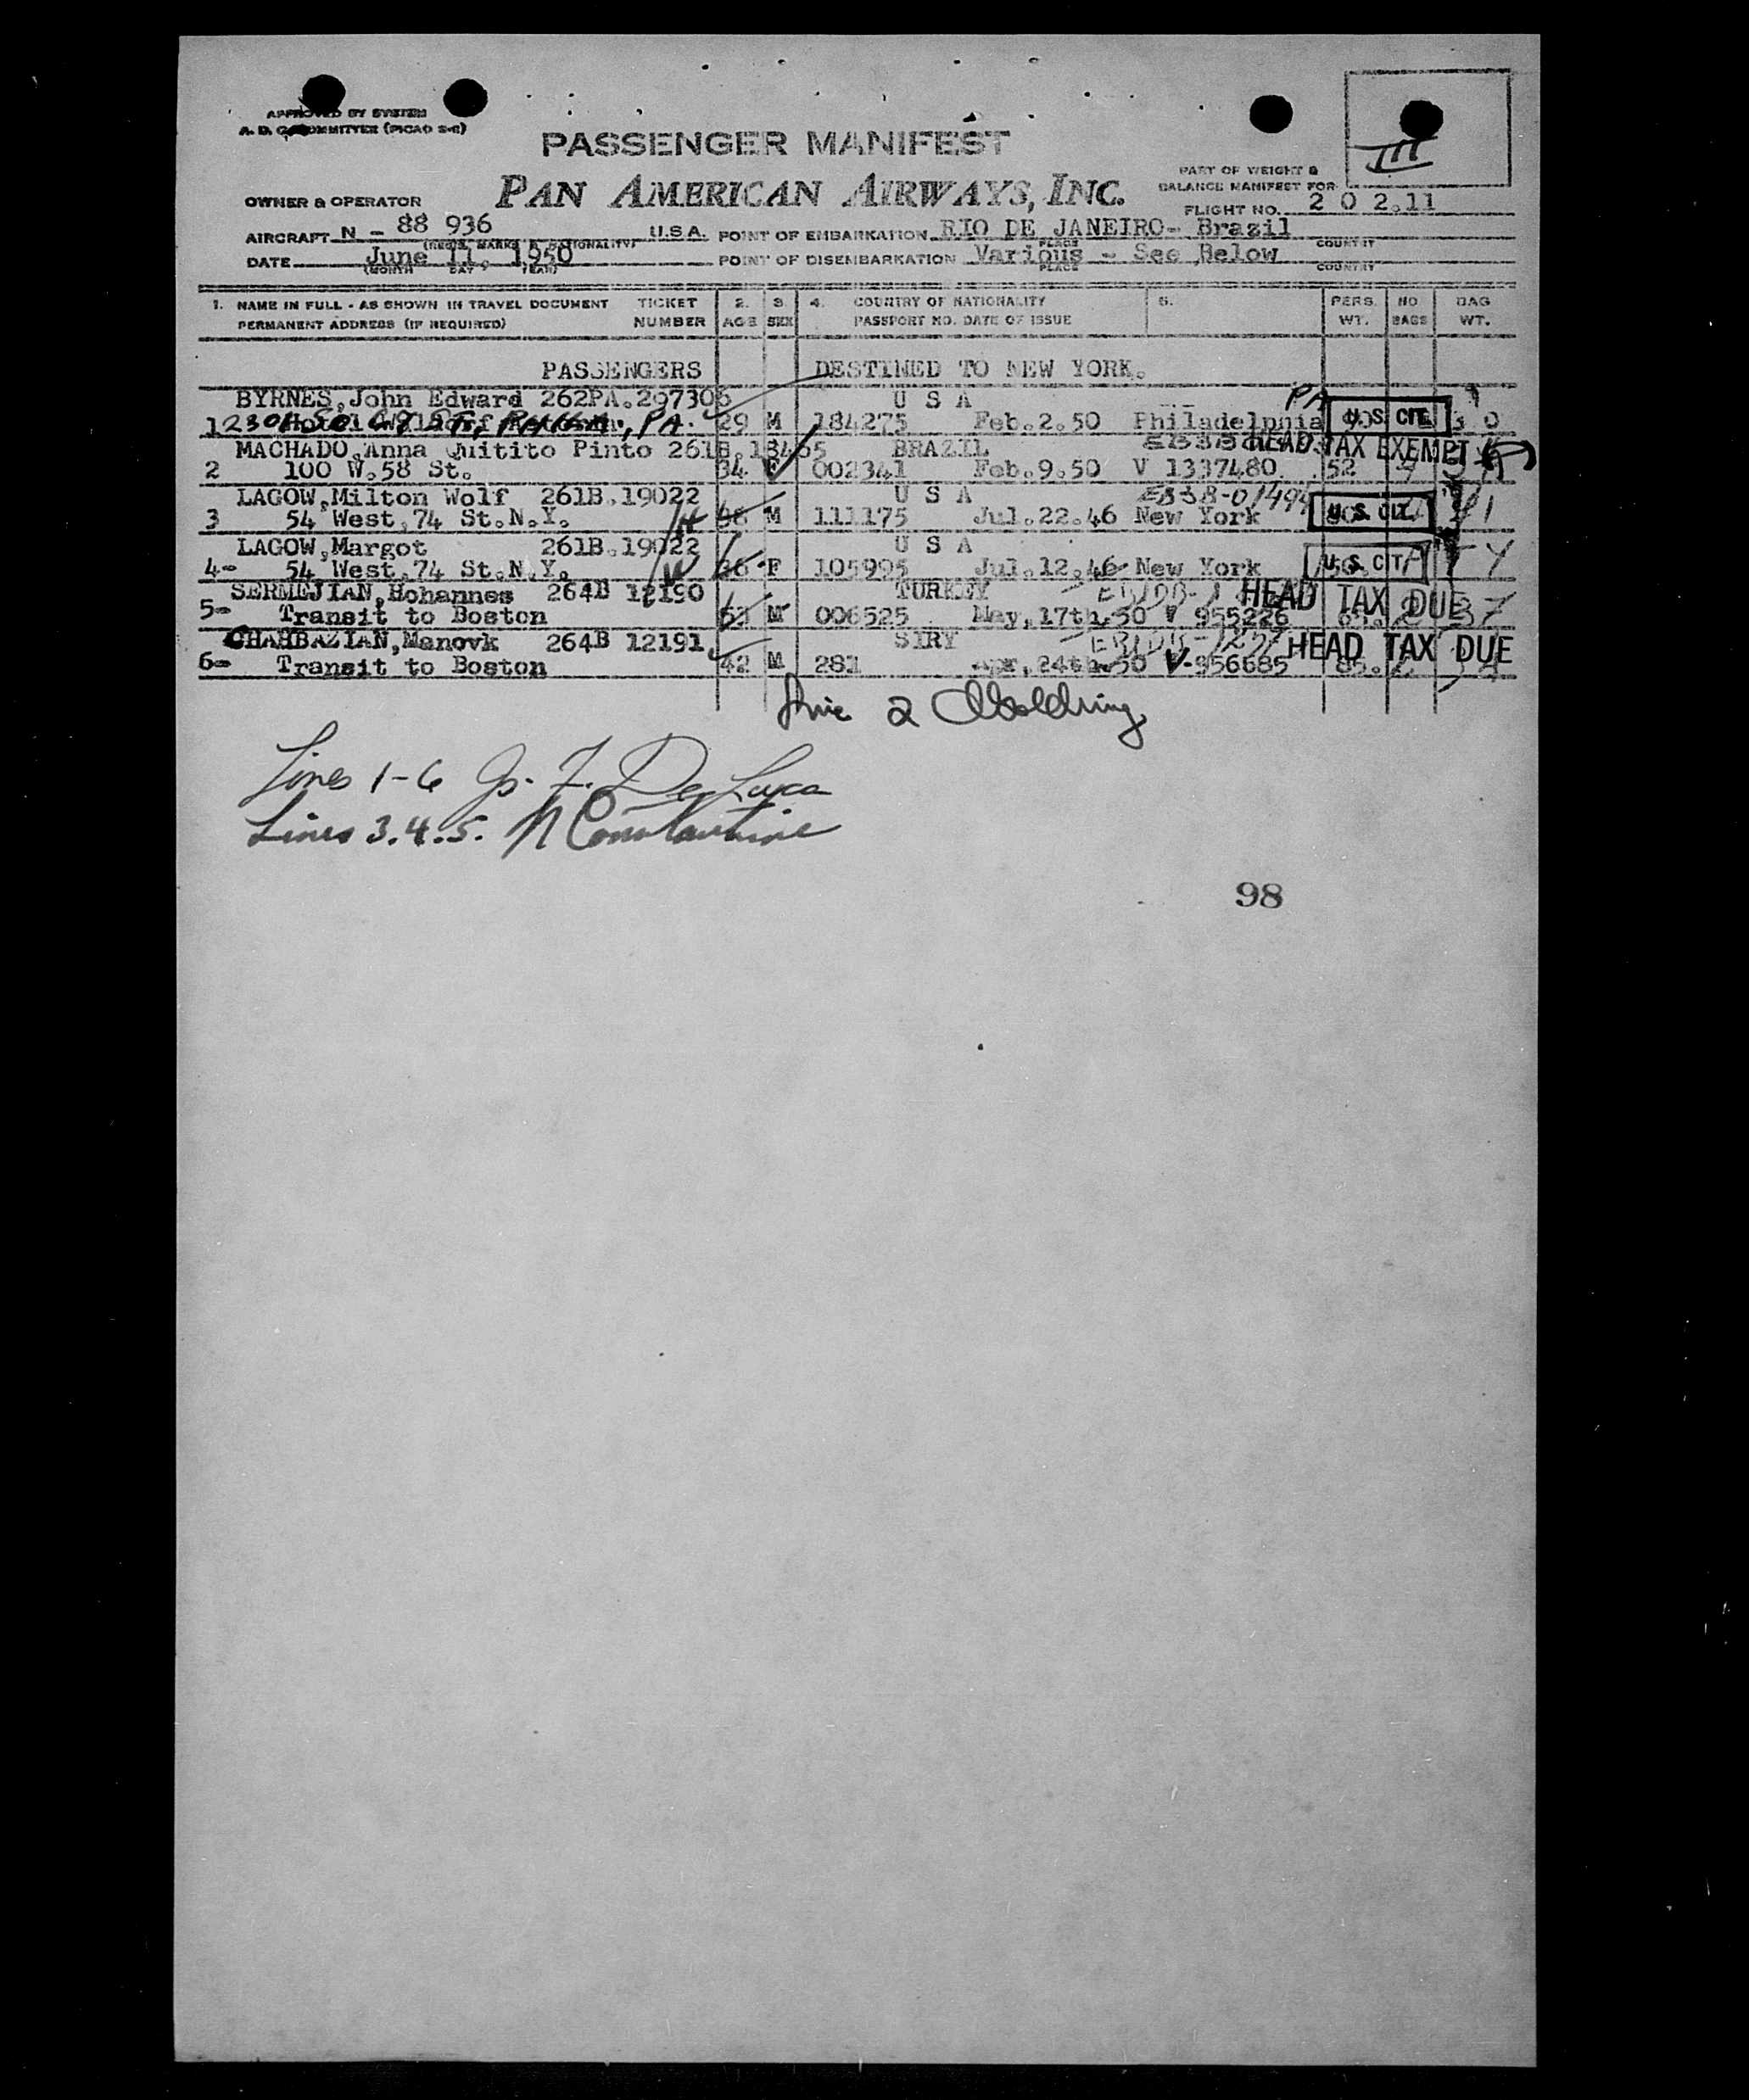 APPROVED BY SYSTEM
A. D. C. COMMITTEE (PICAO 2-6)
PASSENGER MANIFEST
III
PART OF WEIGHT &
BALANCE MANIFEST FOR
OWNER & OPERATOR PAN AMERICAN AIRWAYS, INC. FLIGHT NO. 2 0 2.11
AIRCRAFT N - 88 936 U.S.A. POINT OF EMBARKATION RIO DE JANEIRO- Brazil
(REGIS. MARKS & NATIONALITY) PLACE COUNTRY
DATE June 11, 1950 POINT OF DISEMBARKATION Various - See Below
(MONTH DAY YEAR) PLACE COUNTRY
1. NAME IN FULL - AS SHOWN IN TRAVEL DOCUMENT TICKET 2. 3. 4. COUNTRY OF NATIONALITY 5. PERS. NO. BAG
PERMANENT ADDRESS (IF REQUIRED) NUMBER AGE SEX PASSPORT NO. DATE OF ISSUE WT. BAGS WT.
PASSENGERS DESTINED TO NEW YORK.
BYRNES, John Edward 262PA.297306 U S A PA
1 29 M 184275 Feb.2.50 Philadelphia U.S. CIT. 30
MACHADO, Anna Quitito Pinto 261B.18465 BRAZIL HEAD TAX EXEMPT
2 100 W.58 St. 34 F 002341 Feb.9.50 V 1337480 52
LAGOW, Milton Wolf 261B.19022 U S A
3 54 West, 74 St.N.Y. M 111175 Jul.22.46 New York U.S. CIT.
LAGOW, Margot 261B.19022 U S A
4- 54 West, 74 St.N.Y. 36 F 105995 Jul.12.46 New York U.S. CIT
SERMEJIAN, Hohannes 264B 12190 TURKEY HEAD TAX DUE
5- Transit to Boston 53 M 006525 May, 17th, 50 V 955226
CHAHBAZIAN, Manovk 264B 12191 SIRY HEAD TAX DUE
6- Transit to Boston 42 M 281 Apr, 24th, 50 V-956685 85.
Line 2 Goldring
Lines 1-6 F. De Luca
Lines 3.4.5. N Constantine
98